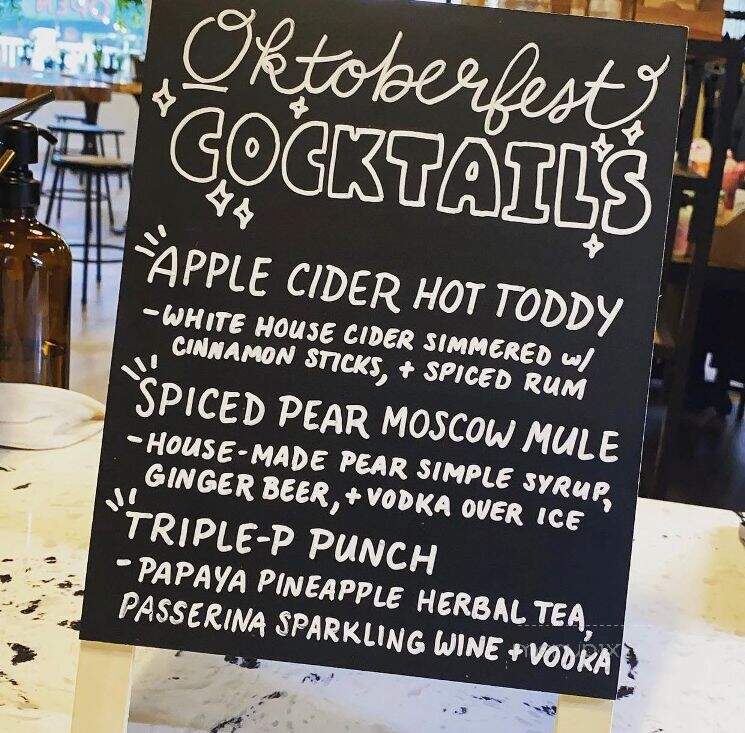 Oktoberfest
COCKTAILS
APPLE CIDER HOT TODDY
-WHITE HOUSE CIDER SIMMERED W/
CINNAMON STICKS, + SPICED RUM
SPICED PEAR MOSCOW MULE
-HOUSE-MADE PEAR SIMPLE SYRUP,
GINGER BEER, + VODKA OVER ICE
TRIPLE-P PUNCH
-PAPAYA PINEAPPLE HERBAL TEA,
PASSERINA SPARKLING WINE + VODKA